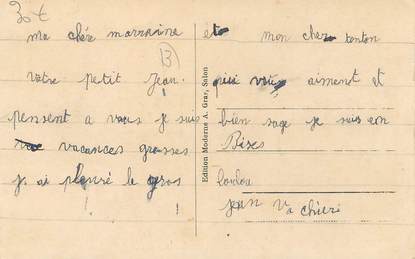 30 €
ma chére marraine et mon cher tonton
13
votre petit Jean. qui vous aiment et
pensent a vous je suis bien sage je suis en
vacances grosses Bises
j ai pleuré le gros loulou
! ! jean va chieri
Edition Moderne A. Gras, Salon